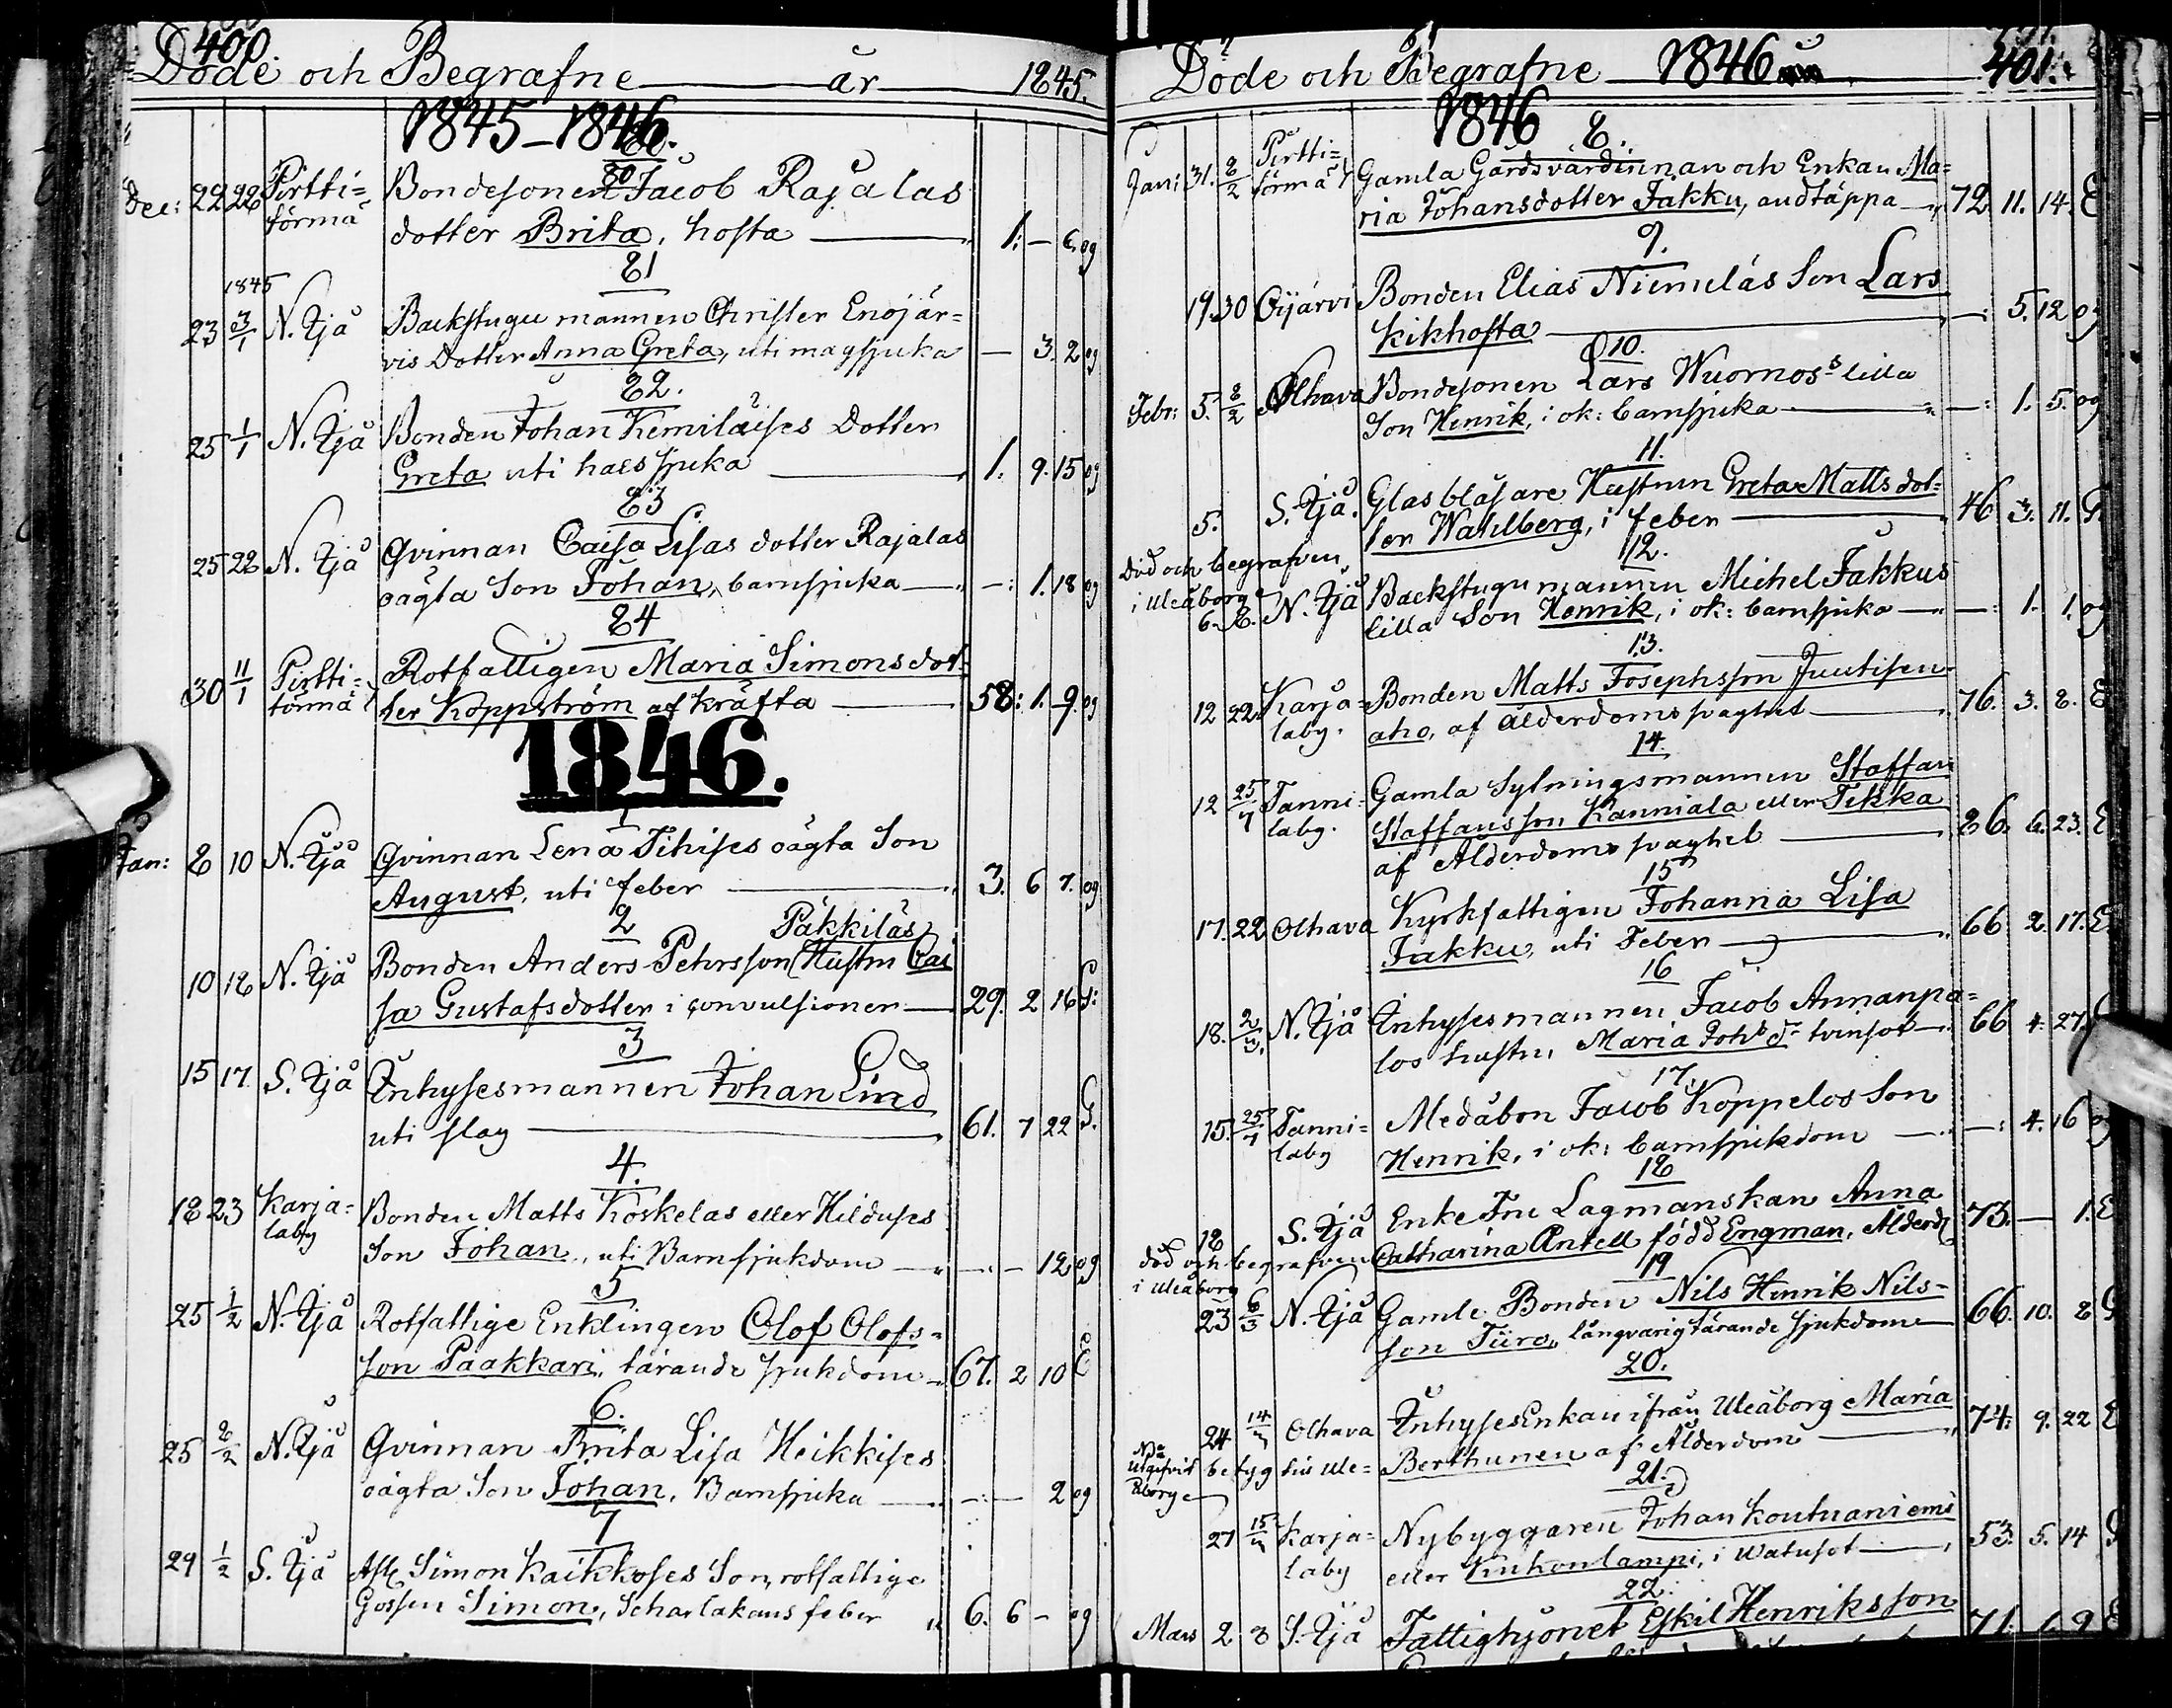 400.
Döde och Begrafne år 1845.
1845–1846.
80
Dec: 22 28 Pirtti= Bondesonen Jacob Rajalas
törmä dotter Brita, hosta 1: — 6. og
81
1845
23 3/1 N. Ijå Backstugu mannen Christer Enojär=
vis Dotter Anna Greta, uti magsjuka — 3. 2 og
82.
25 1/1 N. Ijå Bonden Johan Kemiläises Dotter
Greta uti halssjuka 1. 9. 15 og
83
25 28 N. Ijå Qvinnan Caisa Lisas dotter Rajalas
oägta Son Johan, barnsjuka —: 1. 18 og
84
30 11/1 Pirtti= Rotfattigen Maria Simonsdot=
törmä ter Koppström af kräfta 58: 1. 9. og
1846.
1
Jan: 8 10 N. Ijå Qvinnan Lena Tihises oägta Son
August, uti feber 3. 6 7. og
2 Päkkiläs
10 18 N. Ijå Bonden Anders Pehrsson Hustru Cai
sa Gustafsdotter i convulsioner 29. 2 16 G:
3
15 17. S. Ijå Inhysesmannen Johan Lind
uti slag 61. 7 22 G.
4.
18 23 Karja= Bonden Matts Koskelas eller Hilduses
laby Son Johan, uti Barnsjukdom — — 12 og
5
25 1/2 N. Ijå Rotfattige Enklingen Olof Olofs=
son Paakkari, tärande sjukdom 67. 2 10 E
6.
25 8/2 N. Ijå Qvinnan Brita Lisa Heikkises
oägta Son Johan, Barnsjuka —: — 2 og
7
29 1/2 S. Ijå Afl. Simon Kaikkoses Son, rotfattige
Gossen Simon, Scharlakans feber 6. 6 — og
Döde och Begrafne 1846
401.
1846
8.
Jan: 31. 8/2 Pirtti= Gamla Gårdsvärdinnan och Enkan Ma=
törmä ria Johansdotter Jakku, andtäppa 72 11. 14. E
9.
19. 30 Oijärvi Bonden Elias Niemeläs Son Lars
kikhosta —: 5. 12 og
10.
Febr: 5. 8/2 Olhava Bondesonen Lars Wuornos lilla
Son Henrik, i ok: barnsjuka —: 1. 5. og
11.
5. S. Ijå. Glasblåsare Hustrun Greta Mattsdot=
ter Wahlberg, i feber 46 3. 11. G
Död och begrafven
i Uleåborg
12.
6. 8. N. Ijå Backstugu mannen Michel Jakkus
lilla Son Henrik, i ok: barnsjuka —: 1. 1. og
13.
12 22. Karja= Bonden Matts Josephsson Juutisen
laby. aho, af ålderdomssvaghet 76. 3. 8. E
14.
12 25/7 Tanni= Gamla Sytningsmannen Staffan
laby. Staffansson Kanniala eller Tikka
af Ålderdoms svaghet 86. 6. 23. E
15
17. 22 Olhava Kyrkfattigen Johanna Lisa
Jakku, uti Feber 66 2. 17. E
16
18. 2/3. N. Ijå Inhysesmannen Jacob Annanpa=
los hustru, Maria Johs dr tvinsot 66 4. 27.
17.
15. 25/7 Tanni= Medåbon Jacob Koppelos Son
laby Henrik, i ok: barnsjukdom —: 4. 16 og
18
18 S. Ijå Enke Fru Lagmanskan Anna
Catharina Antell född Engman, Ålderd 73. — 1. E
död och begrafven
i Uleåborg
19
23 6/3 N. Ijå Gamle Bonden Nils Henrik Nils=
son Tiiro, långvarig tärande sjukdom 66. 10. 8 G
20.
24 14/3 Olhava Inhyses Enkan ifrån Uleåborg Maria
Berthunen af Ålderdom 74: 9. 22 E
Utgifvit betyg till Ule=
åborg
21.
27 15/3 Karja= Nybyggaren Johan Koutuaniemi
laby eller Kuhonlampi, i Watusot 53. 5. 14 G
22.
Mars 2. 8 S. Ijå Fattighjonet Eskil Henriksson 71. 1. 9 E